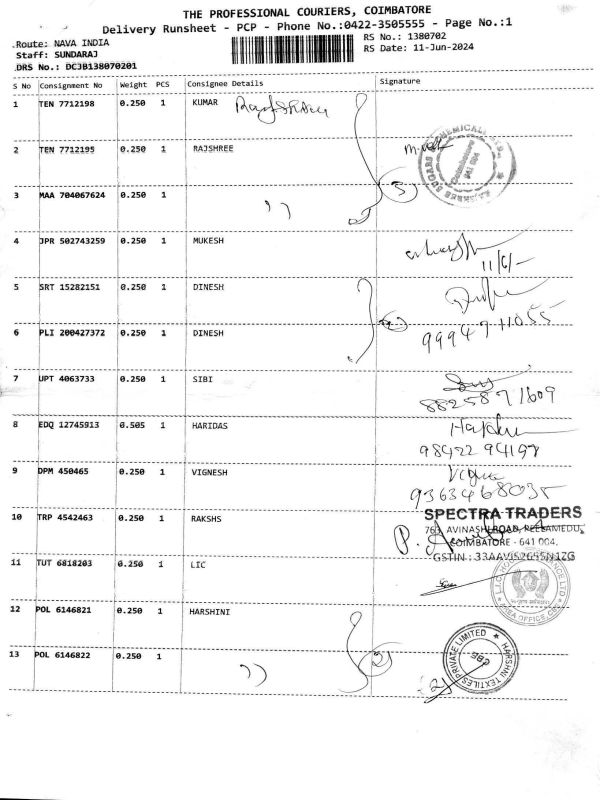 THE PROFESSIONAL COURIERS, COIMBATORE
Delivery Runsheet - PCP - Phone No.:0422-3505555 - Page No.:1
Route: NAVA INDIA
RS No.: 1380702
Staff: SUNDARAJ
RS Date: 11-Jun-2024
DRS No.: DCJB138070201
S No Consignment No Weight PCS Consignee Details Signature
1 TEN 7712198 0.250 1 KUMAR
2 TEN 7712195 0.250 1 RAJSHREE
3 MAA 704067624 0.250 1 )) 3
4 JPR 502743259 0.250 1 MUKESH
11/6/-
5 SRT 15282151 0.250 1 DINESH
6 PLI 200427372 0.250 1 DINESH
99947 11055
7 UPT 4063733 0.250 1 SIBI
88258 71609
8 EDQ 12745913 0.505 1 HARIDAS
98422 94198
9 DPM 450465 0.250 1 VIGNESH
93634 68035
SPECTRA TRADERS
10 TRP 4542463 0.250 1 RAKSHS
763, AVINASHI ROAD, PEELAMEDU,
COIMBATORE - 641 004.
11 TUT 6818203 0.250 1 LIC
12 POL 6146821 0.250 1 HARSHINI
HARSHNI TEXTILES PRIVATE LIMITED
CBE
13 POL 6146822 0.250 1 )) 2
(2)